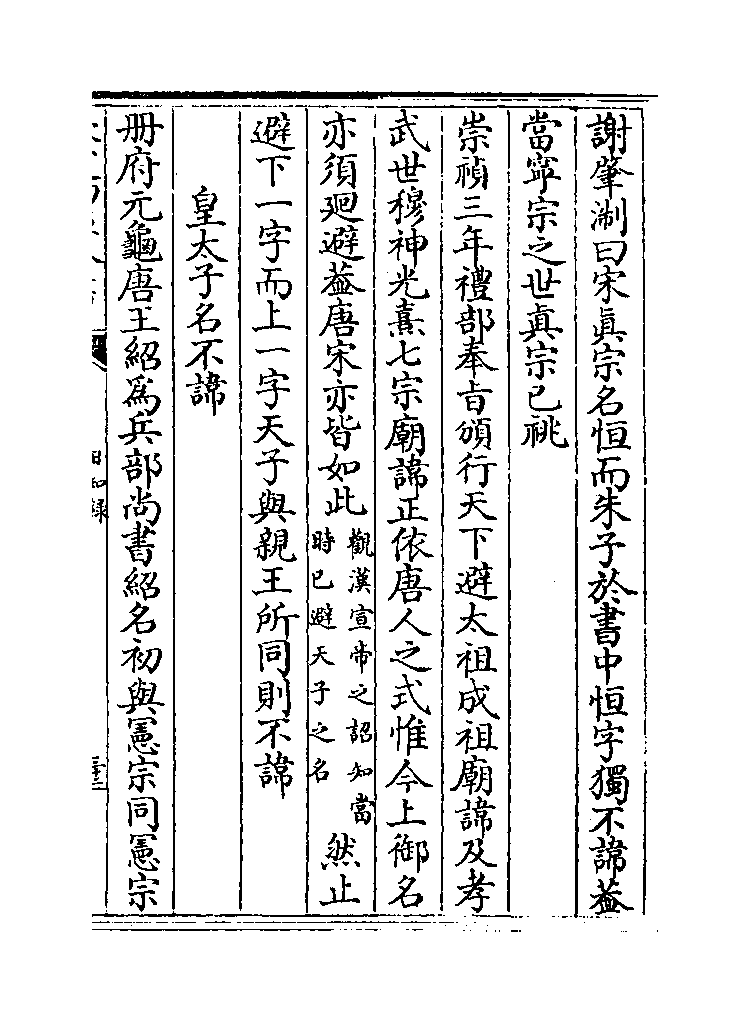 謝肇淛曰宋眞宗名恒而朱子於書中恒字獨不諱葢
當寜宗之世眞宗已祧
崇禎三年禮部奉㫖頒行天下避太祖成祖廟諱及孝
武世穆神光熹七宗廟諱正依唐人之式惟今上御名
亦須廻避葢唐宋亦皆如此觀漢宣帝之詔知當時已避天子之名然止
避下一字而上一字天子與親王所同則不諱
皇太子名不諱
册府元龜唐王紹爲兵部尚書紹名初與憲宗同憲宗
日知録